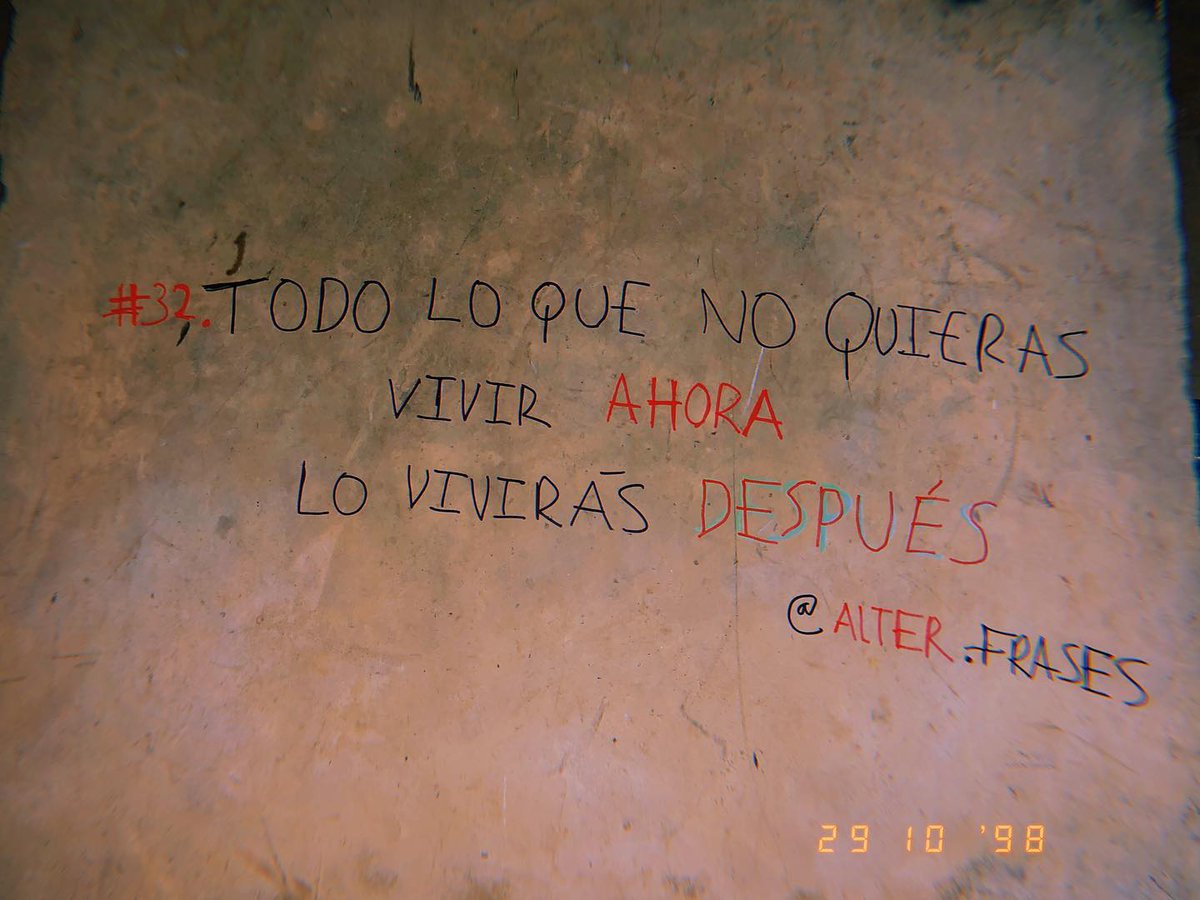 #32. TODO LO QUE NO QUIERAS
VIVIR AHORA
LO VIVIRÁS DESPUÉS
@ALTER.FRASES
29 10 '98